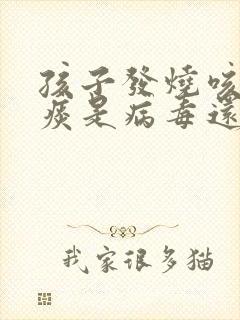 孩子發燒咳
痰是病毒還
我家很多猫